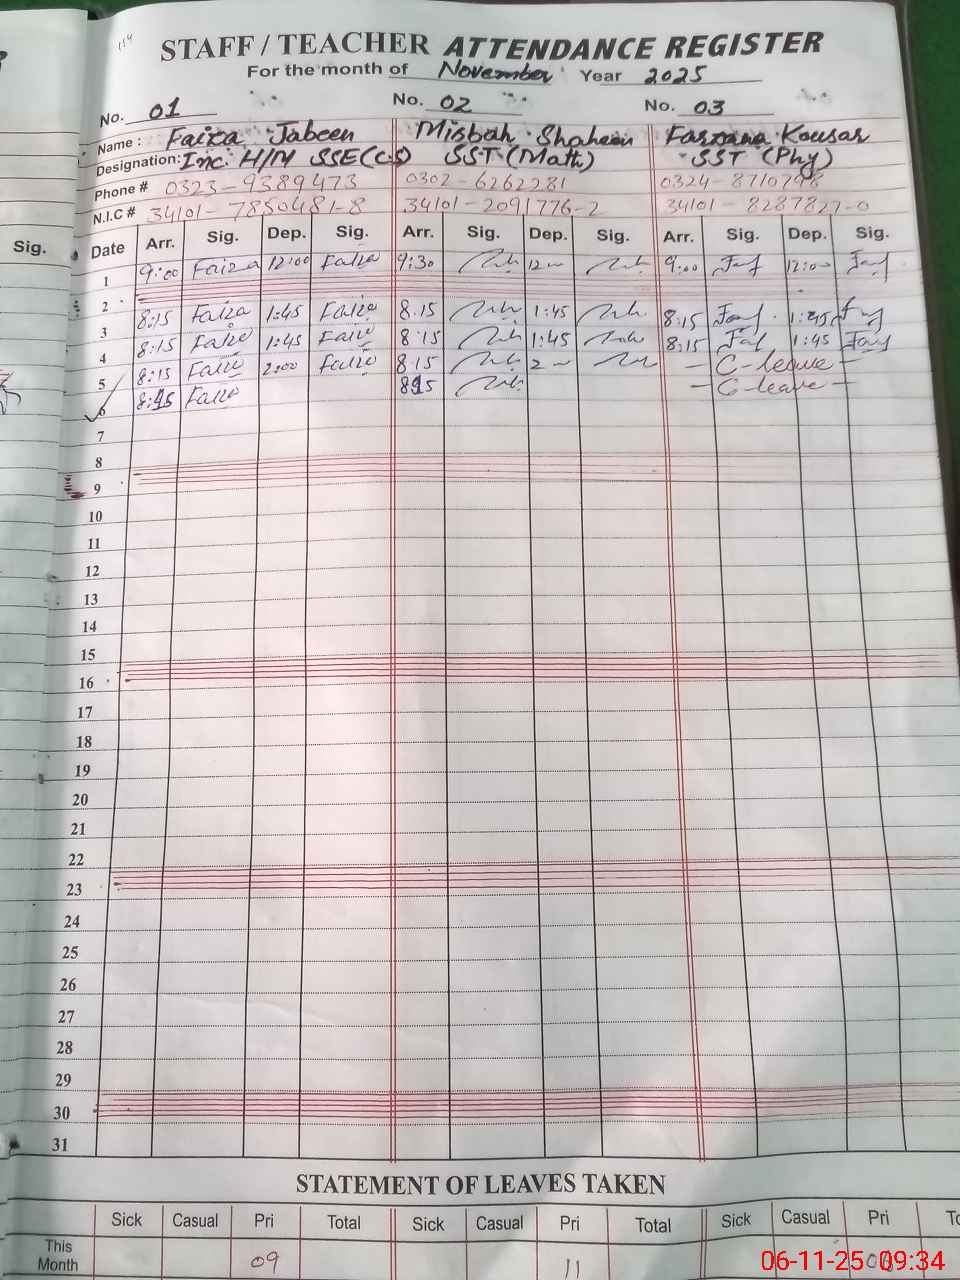 114
STAFF / TEACHER ATTENDANCE REGISTER
For the month of November Year 2025
No. 01 No. 02 No. 03
Name : Faiza Jabeen Misbah Shaheen Farzana Kousar
Designation: Inc. H/M SSE(CS) SST (Math) SST (Phy)
Phone # 0323-9389473 0302-6262281 0324-8710798
N.I.C # 34101-7850481-8 34101-2091776-2 34101-8287827-0
Sig.
Date Arr. Sig. Dep. Sig. Arr. Sig. Dep. Sig. Arr. Sig. Dep. Sig.
1 9:00 Faiza 12:00 Faiza 9:30 12 9:00 12:00
2
3 8:15 Faiza 1:45 Faiza 8:15 1:45 8:15 1:45
4 8:15 Faiza 1:45 Faiza 8:15 1:45 8:15 1:45
5 8:15 Faiza 2:00 Faiza 8:15 2 — C-leave —
6 8:15 Faiza 8:15 — C-leave —
7
8
9
10
11
12
13
14
15
16
17
18
19
20
21
22
23
24
25
26
27
28
29
30
31
STATEMENT OF LEAVES TAKEN
Sick Casual Pri Total Sick Casual Pri Total Sick Casual Pri
This Month 09 11
06-11-25 09:34